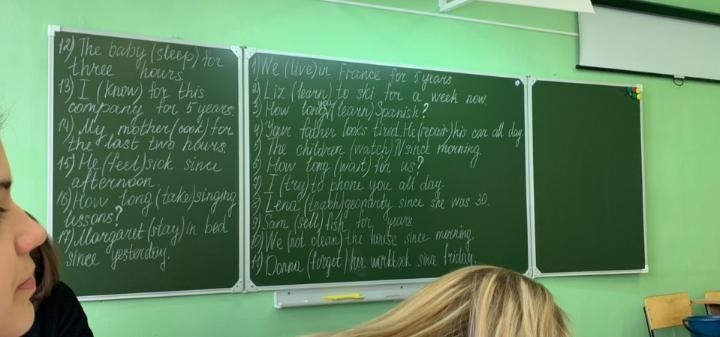 12) The baby (sleep) for
three hours
13) I (know) for this
company for 5 years.
14) My mother (cook) for
the last two hours
15) He (feel) sick since
afternoon
16) How long (take) singing
lessons?
17) Margaret (stay) in bed
since yesterday.
1) We (live) in France for 5 years
2) Liz (learn) to ski for a week now.
3) How long you (learn) Spanish?
4) Your father looks tired. He (repair) his car all day
5) The children (watch) TV since morning.
6) How long (wait) for us?
7) I (try) to phone you all day.
8) Lena (teach) geometry since she was 30.
9) Sam (sell) fish for years
10) We (not clean) the house since morning.
11) Donna (forget) her workbook since friday.